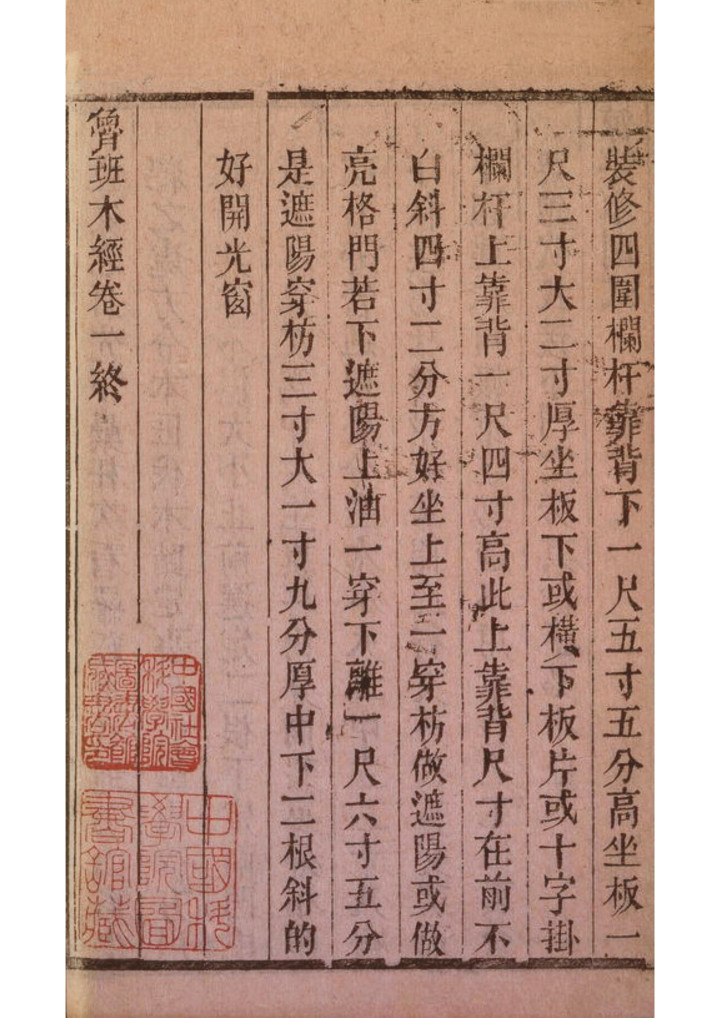 裝修四圍欄杆靠背下一尺五寸五分高坐板一
尺三寸大二寸厚坐板下或橫下板片或十字掛
欄杆上靠背一尺四寸高此上靠背尺寸在前不
白斜四寸二分方好坐上至一穿枋做遮陽或做
亮格門若下遮陽上油一穿下離一尺六寸五分
是遮陽穿枋三寸大一寸九分厚中下二根斜的
好開光窗
魯班木經卷一終
中國社會
科學院
圖書館
藏書印
中國科
學院圖
書館藏